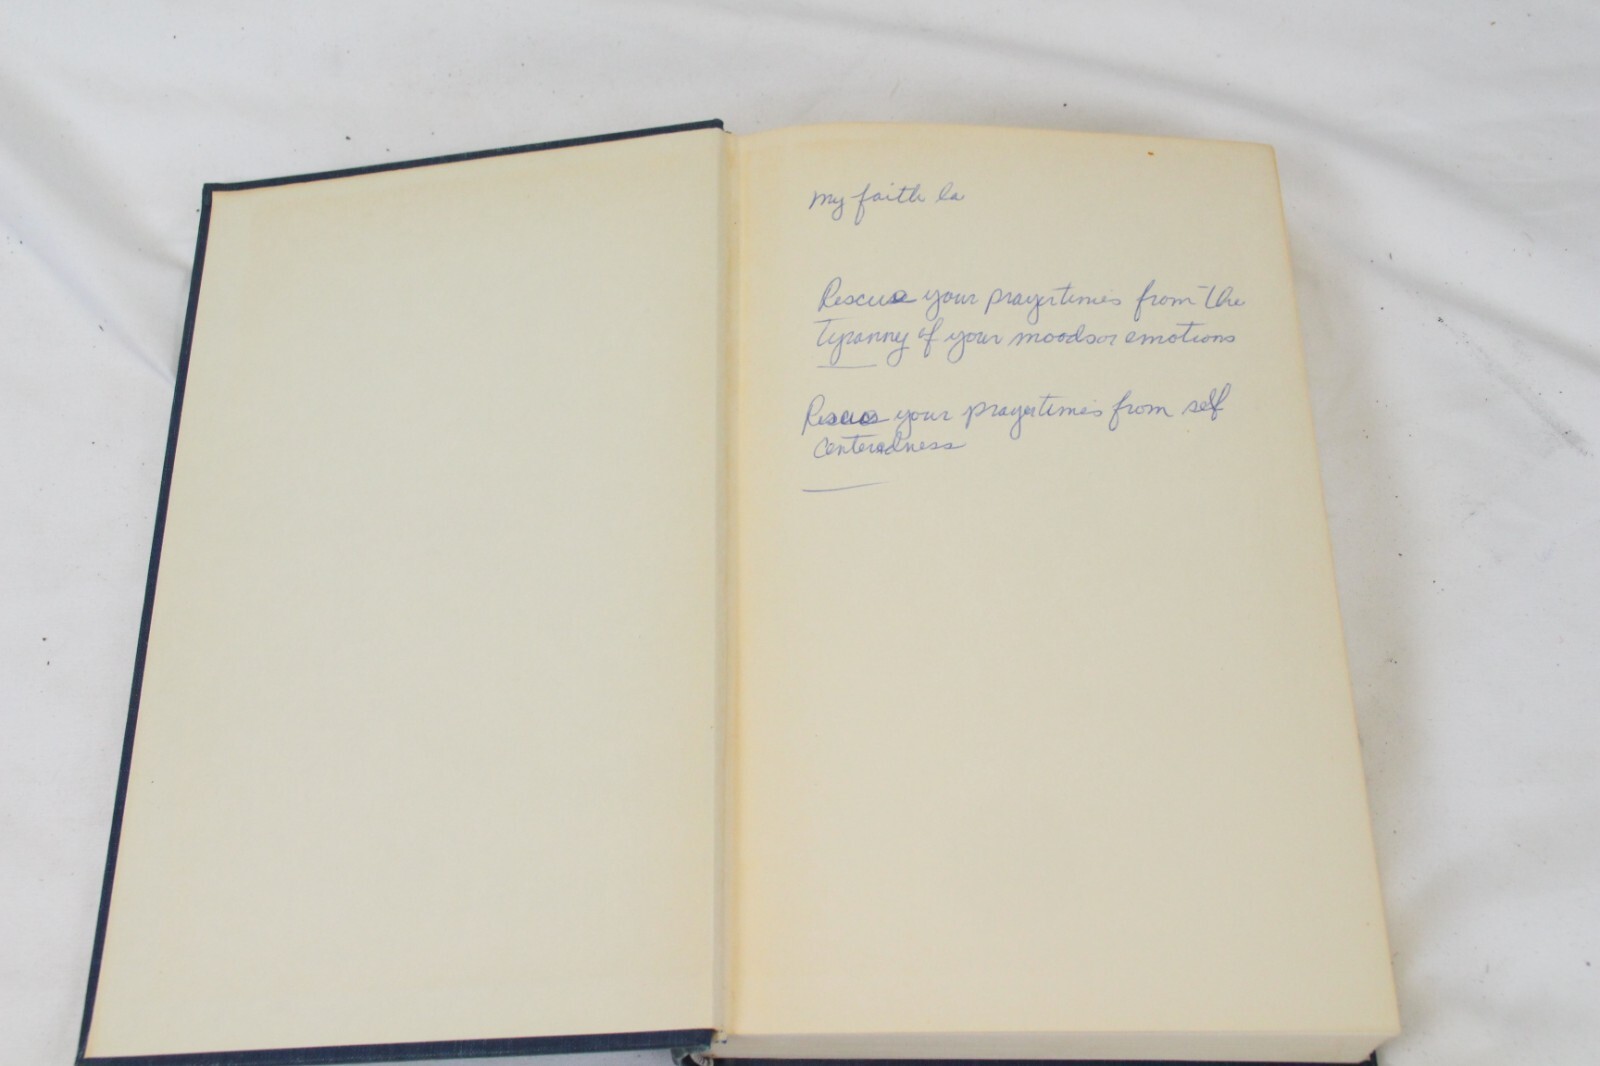 My faith la
Rescue your prayertimes from the
Tyranny of your moods or emotions
Rescue your prayertimes from self
centeredness